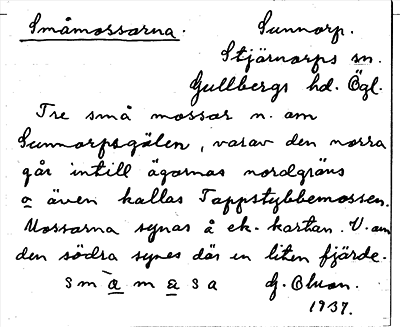 Småmossarna. Sunnorp.
Stjärnorps sn.
Gullbergs hd. Ögl.
Tre små mossar n. om
Sunnorpsgölen, varav den norra
går intill ägornas nordgräns
o även kallas Tappstybbemossen.
Mossarna synas å ek. kartan. V. om
den södra synes där en liten fjärde.
smàmasa G. Olson.
1937.